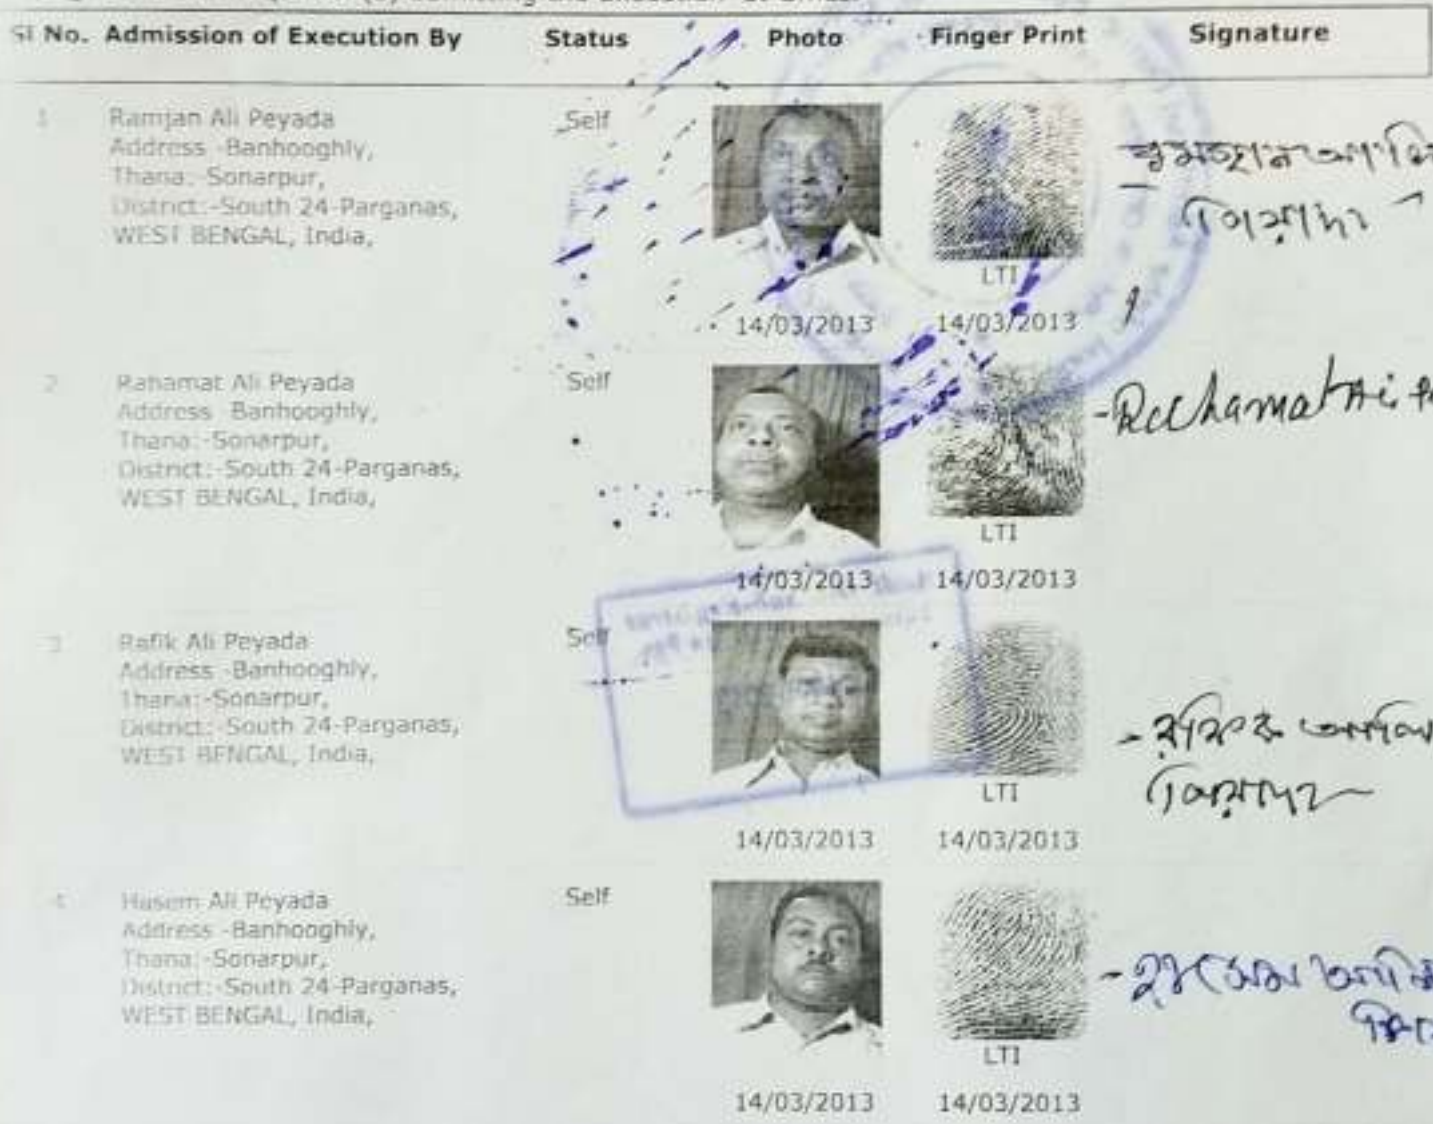 Sl No. Admission of Execution By Status Photo Finger Print Signature
1 Ramjan Ali Peyada Self
Address -Banhooghly,
Thana:-Sonarpur,
District:-South 24-Parganas,
WEST BENGAL, India,
LTI
14/03/2013 14/03/2013
রমজান আলি
পেয়াদা
2 Rahamat Ali Peyada Self
Address -Banhooghly,
Thana:-Sonarpur,
District:-South 24-Parganas,
WEST BENGAL, India,
LTI
14/03/2013 14/03/2013
- Rahamat Ali
3 Rafik Ali Peyada Self
Address -Banhooghly,
Thana:-Sonarpur,
District:-South 24-Parganas,
WEST BENGAL, India,
LTI
14/03/2013 14/03/2013
- রফিক আলি
পেয়াদা
4 Hasem Ali Peyada Self
Address -Banhooghly,
Thana:-Sonarpur,
District:-South 24-Parganas,
WEST BENGAL, India,
LTI
14/03/2013 14/03/2013